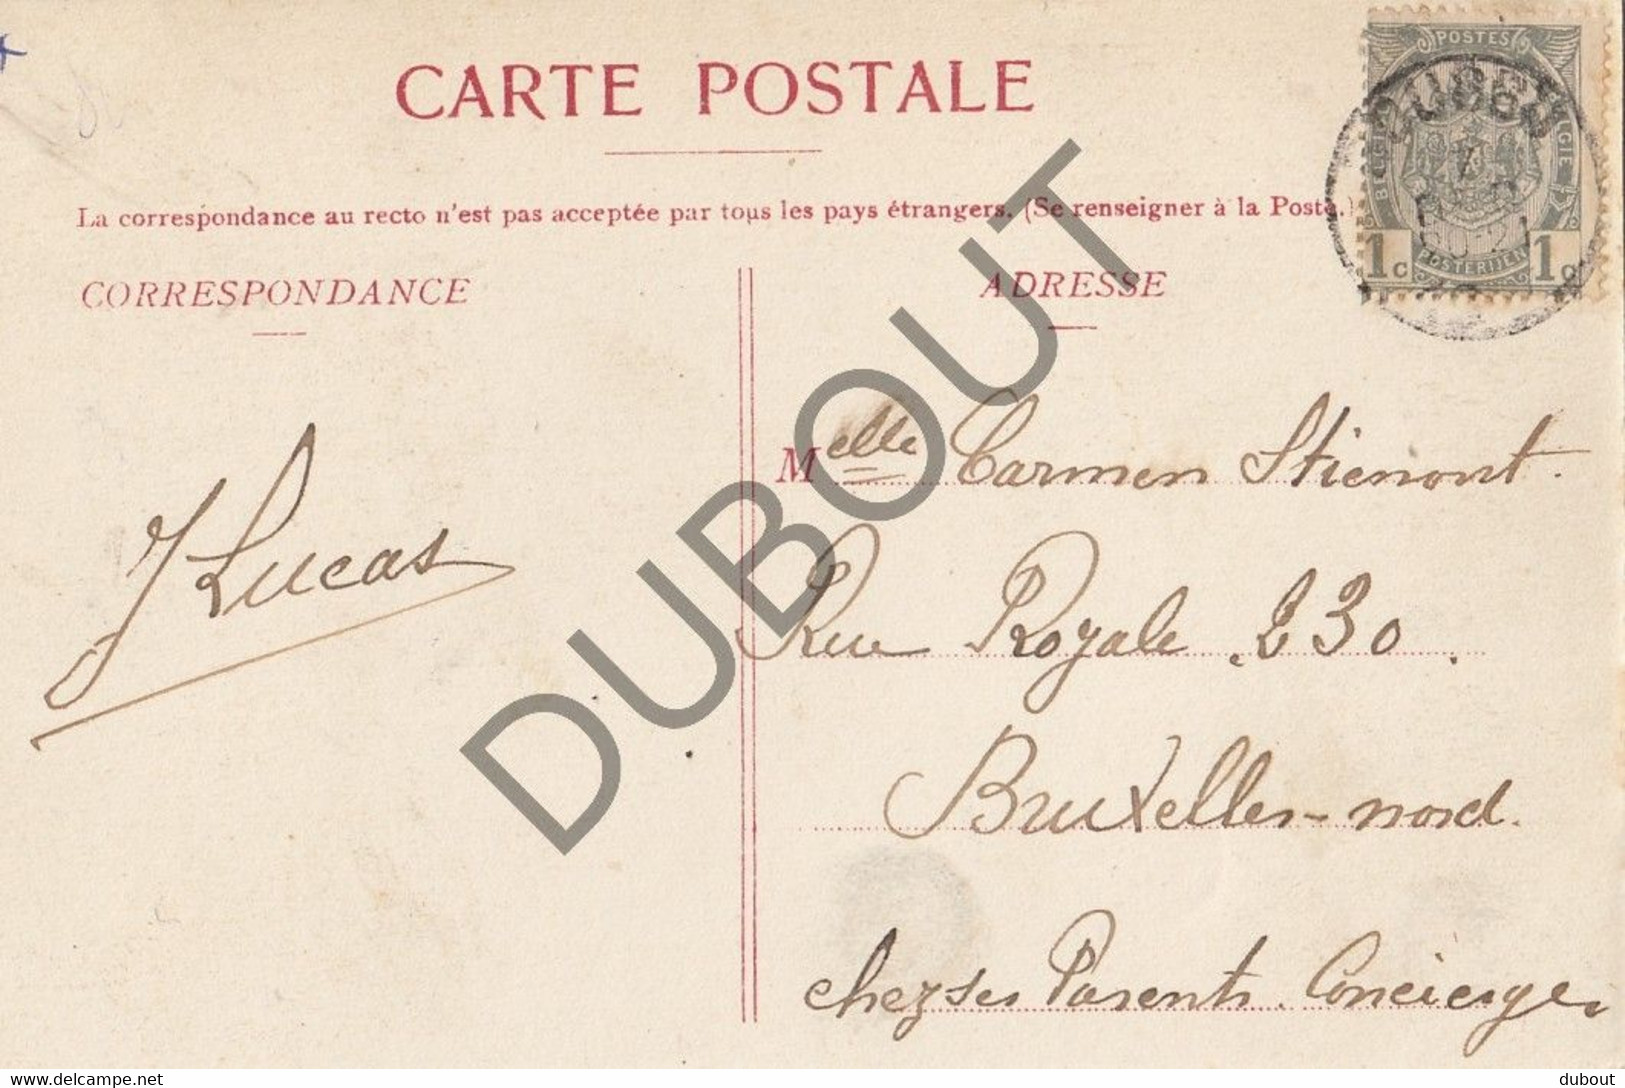 CARTE POSTALE
POSTES
BELGIE
1c
POSTERIJEN
1c
La correspondance au recto n'est pas acceptée par tous les pays étrangers. (Se renseigner à la Poste.)
CORRESPONDANCE
ADRESSE
Melle Carmen Stienont.
J Lucas
Rue Royale. 230.
Bruxelles-nord.
chez ses Parents. Concierges
DUBOUT
www.delcampe.net
dubout